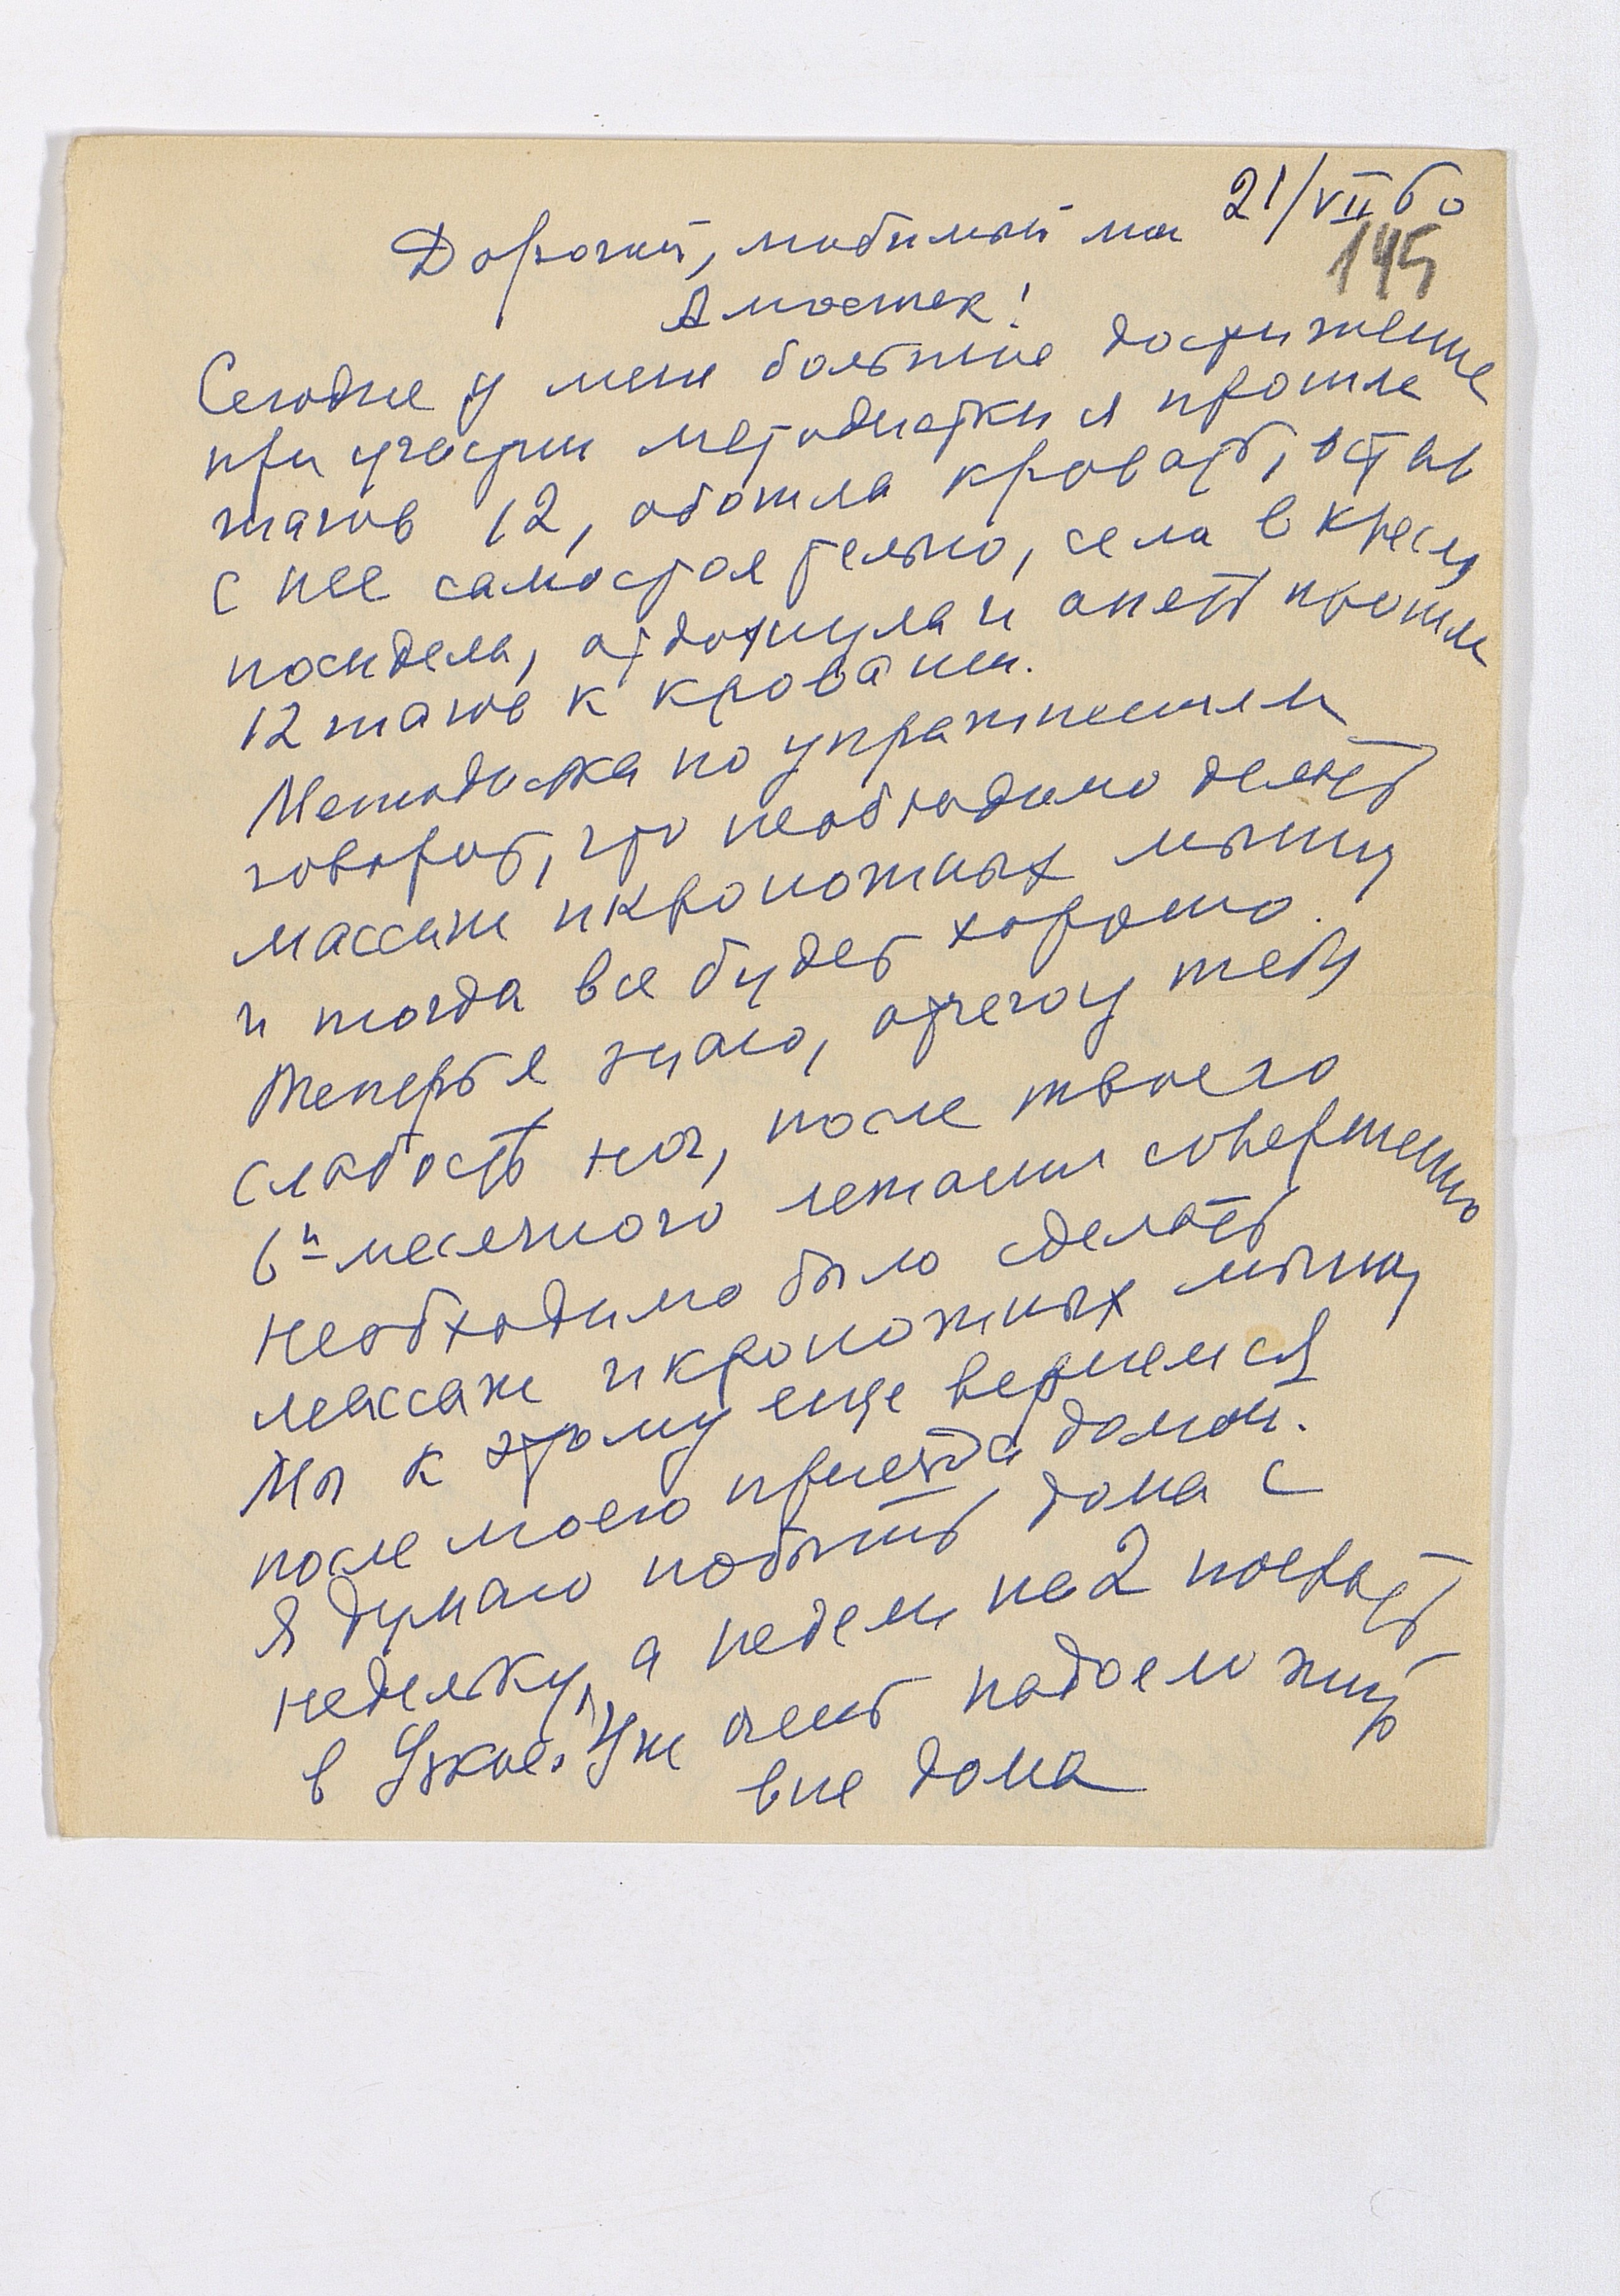 21/VII 60
145
Дорогой, любимый мой
Амостек!
Сегодня у меня большие достижения
при участии методистки я прошла
шагов 12, обошла кровать, встав
с нее самостоятельно, села в кресло
посидела, отдохнула и опять прошла
12 шагов к кровати.
Методистка по упражнениям
говорит, что необходимо делать
массаж икроножных мышц
и тогда все будет хорошо.
Теперь я знаю, отчего у тебя
слабость ног, после твоего
6и-месячного лежания совершенно
необходимо было сделать
массаж икроножных мышц
Мы к этому еще вернемся
после моего приезда домой.
Я думаю побыть дома с
недельку, а недели на 2 поехать
в Узкое. Уж очень надоело жить
вне дома